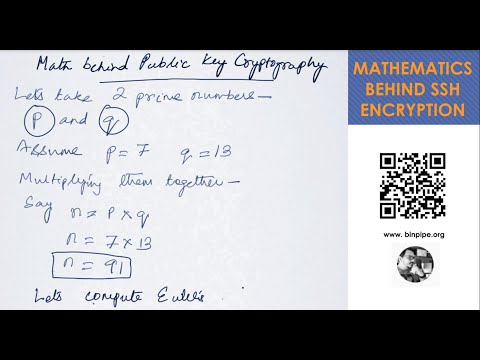 Math behind Public Key Cryptography
Lets take 2 prime numbers—
p and q
Assume p = 7 q = 13
Multiplying them together—
Say n = p × q
n = 7 × 13
n = 91
Lets compute Euler's
MATHEMATICS
BEHIND SSH
ENCRYPTION
www. binpipe.org